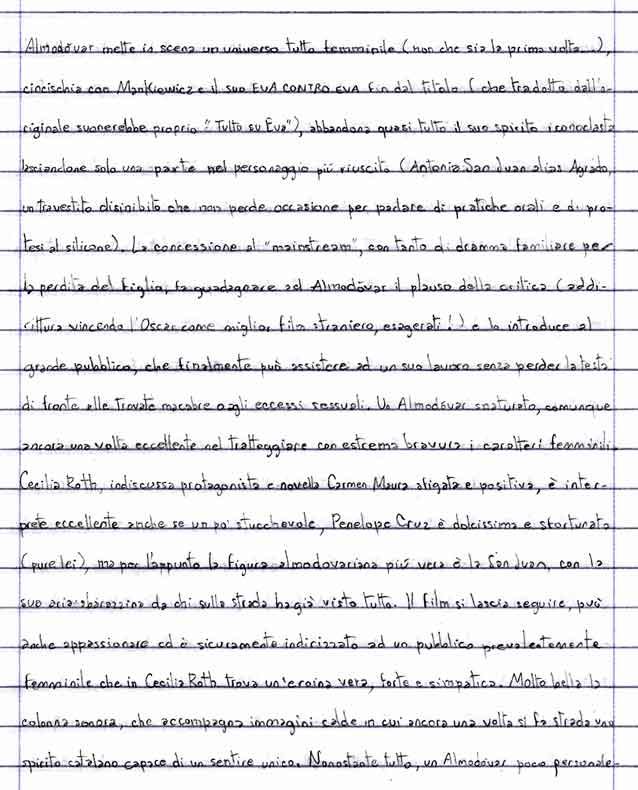 Almodóvar mette in scena un universo tutto femminile (non che sia la prima volta...),
cincischia con Mankiewicz e il suo EVA CONTRO EVA fin dal titolo (che tradotto dall'o-
riginale suonerebbe proprio "Tutto su Eva"), abbandona quasi tutto il suo spirito iconoclasta
lasciandone solo una parte nel personaggio più riuscito (Antonia San Juan alias Agrado,
un travestito disinibito che non perde occasione per parlare di pratiche orali e di pro-
tesi al silicone). La concessione al "mainstream", con tanto di dramma familiare per
la perdita del figlio, fa guadagnare ad Almodóvar il plauso della critica (addi-
rittura vincendo l'Oscar come miglior film straniero, esagerati!) e lo introduce al
grande pubblico, che finalmente può assistere ad un suo lavoro senza perder la testa
di fronte alle trovate macabre o agli eccessi sessuali. Un Almodóvar snaturato, comunque
ancora una volta eccellente nel tratteggiare con estrema bravura i caratteri femminili.
Cecilia Roth, indiscussa protagonista e novella Carmen Maura sfigata e positiva, è inter-
prete eccellente anche se un po' stucchevole, Penelope Cruz è dolcissima e sfortunata
(pure lei), ma per l'appunto la figura almodovariana più vera è la San Juan, con la
sua aria sbarazzina da chi sulla strada ha già visto tutto. Il film si lascia seguire, può
anche appassionare ed è sicuramente indirizzato ad un pubblico prevalentemente
femminile che in Cecilia Roth trova un'eroina vera, forte e simpatica. Molto bella la
colonna sonora, che accompagna immagini calde in cui ancora una volta si fa strada uno
spirito catalano capace di un sentire unico. Nonostante tutto, un Almodóvar poco personale.